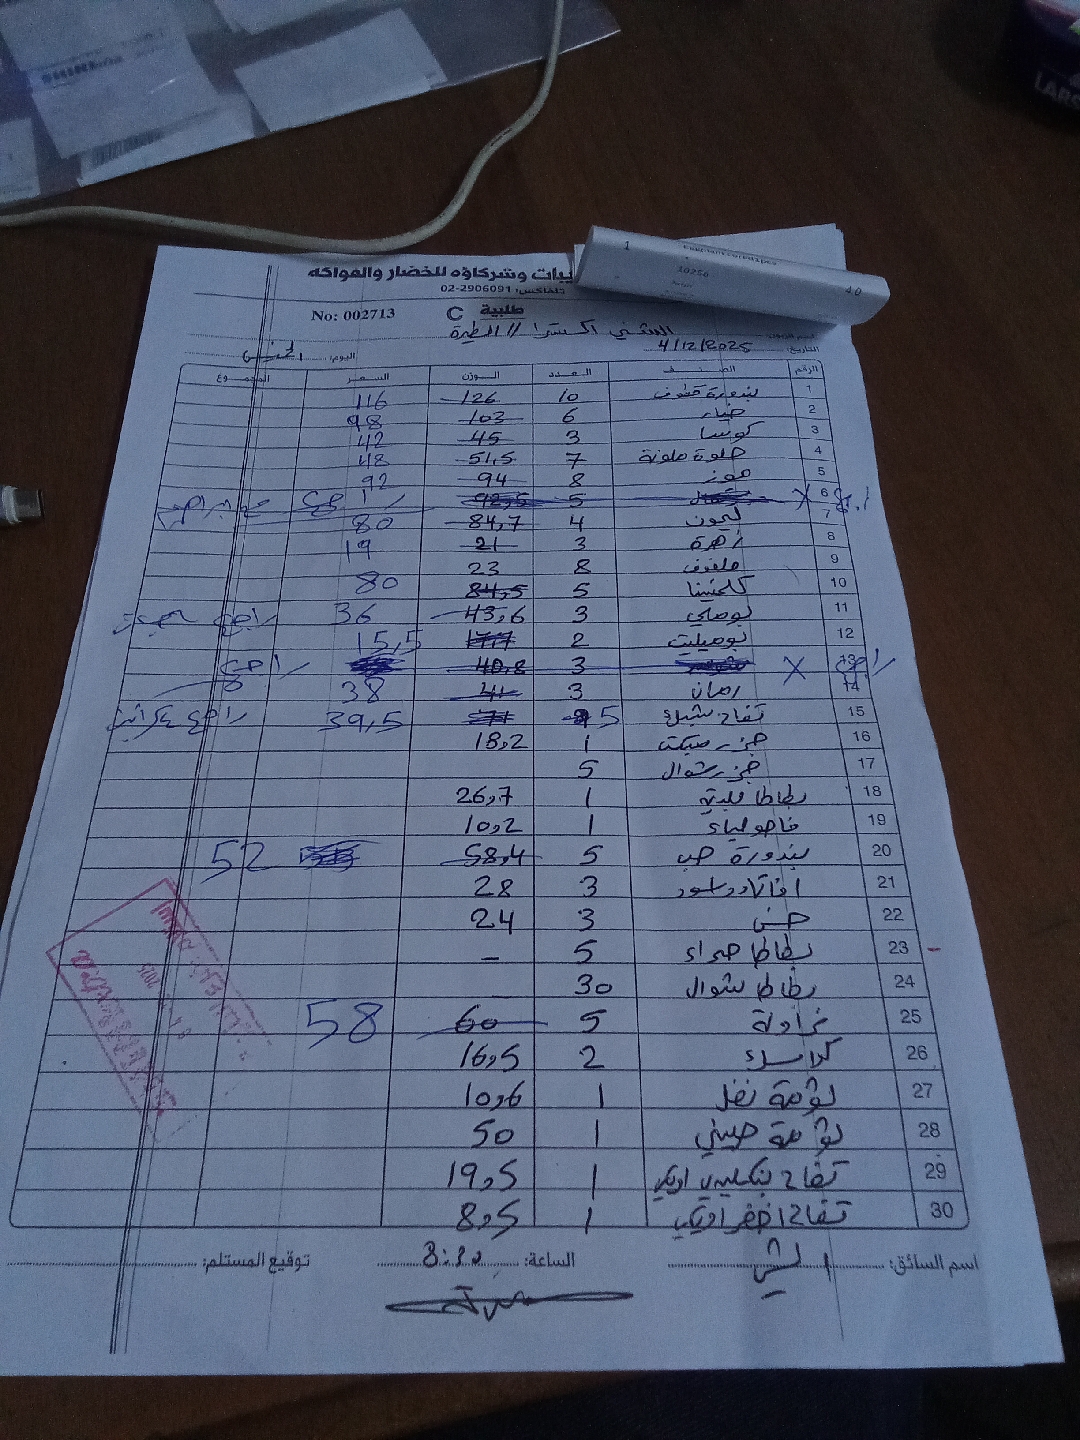 يبات وشركاؤه للخضار والفواكه
تلفاكس: 02-2906091
طلبية C No: 002713
اكسترا // الطيرة
التاريخ: 4/12/2025 اليوم: الخميس
الرقم الصنف العدد الوزن السعر المجموع
1 بندورة قطوف 10 126 116
2 خيار 6 103 98
3 كوسا 3 45 42
4 حلوة ملونة 7 51,5 48
5 موز 8 94 92
6 X 5 92,5 راجع
7 ليمون 4 84,7 80
8 زهرة 3 21 19
9 ملفوف 8 23
10 كلمنتينا 5 84,5 80
11 بوملي 3 43,6 36 راجع
12 بوميليت 2 17,7 15,5
راجع 13 X 3 40,8 راجع
14 رمان 3 41 38
15 تفاح 5 39,5 راجع
16 جزر 1 18,2
17 جزر شوال 5
18 بطاطا 1 26,7
19 فاصولياء 1 10,2
20 بندورة حب 5 58,4 52
21 3 28
22 خس 3 24
23 بطاطا حمراء 5 –
24 بطاطا شوال 30 –
25 فراولة 5 60 58
26 2 16,5
27 ثومة نفل 1 10,6
28 ثومة صيني 1 50
29 تفاح 1 19,5
30 تفاح اخضر 1 8,5
اسم السائق: الساعة: توقيع المستلم: